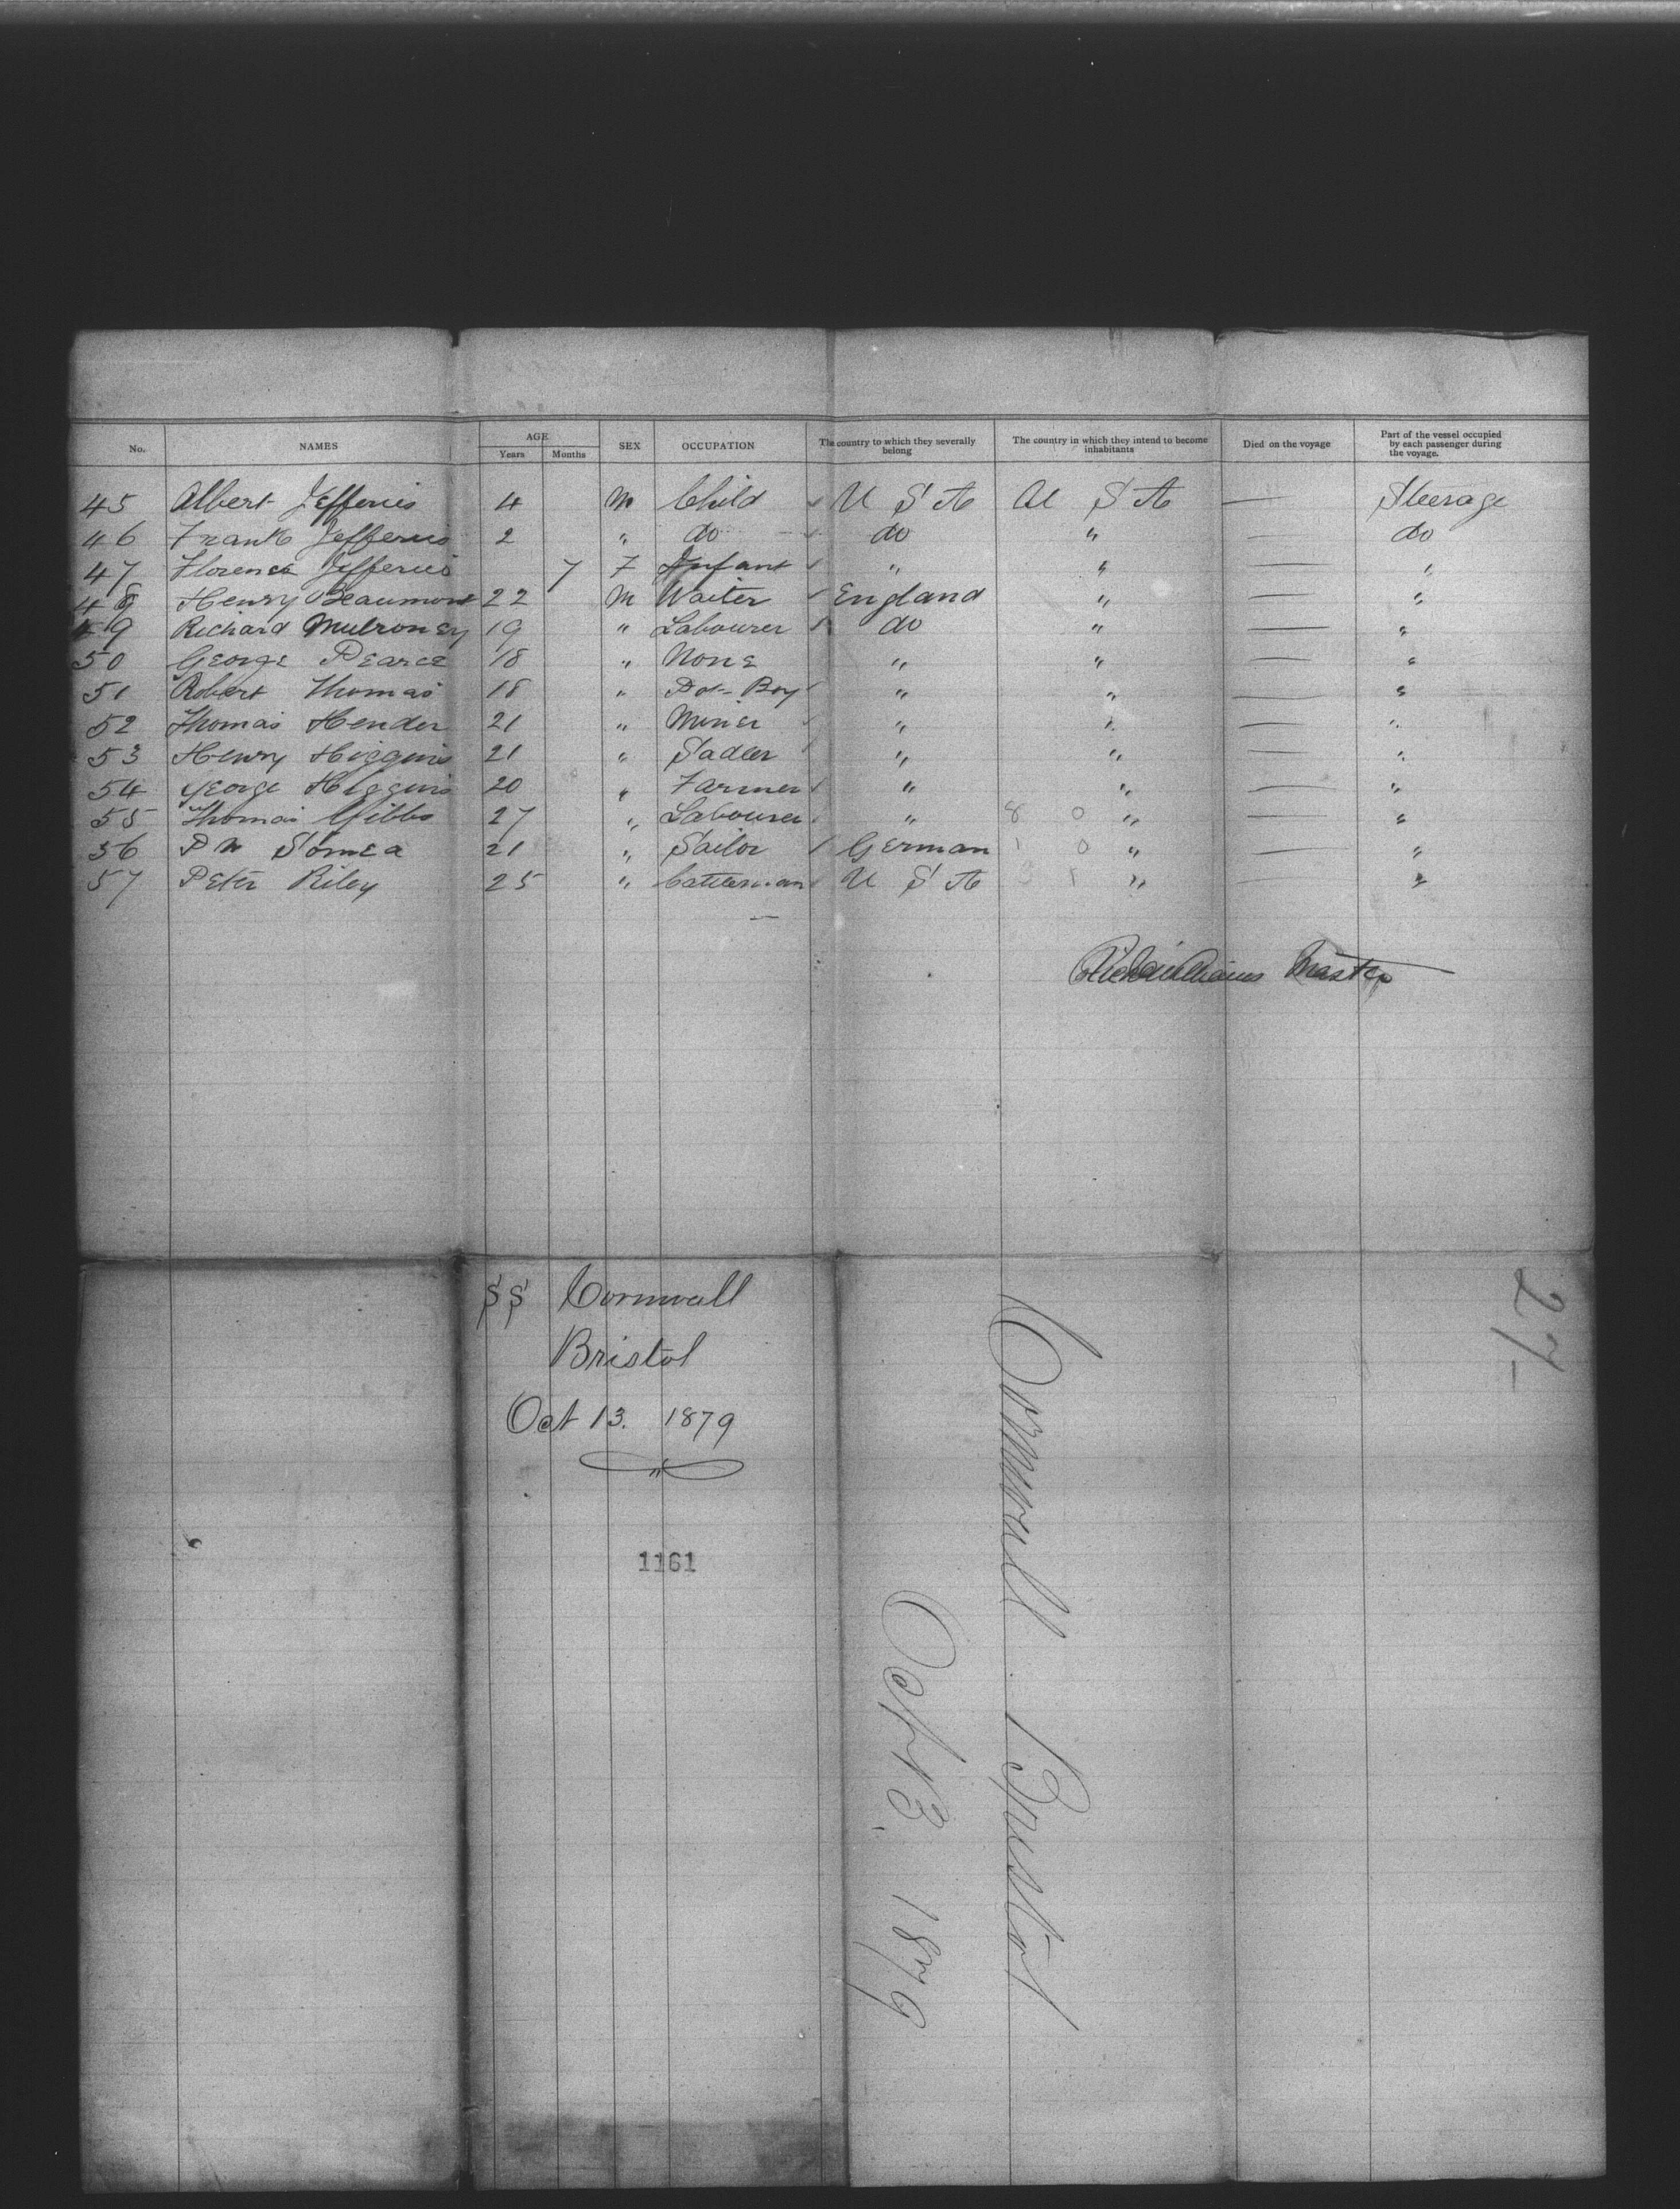 No. NAMES AGE Years Months SEX OCCUPATION The country to which they severally belong The country in which they intend to become inhabitants Died on the voyage Part of the vessel occupied by each passenger during the voyage.
45 Albert Jefferies 4 M Child U S A U S A — Steerage
46 Frank Jefferies 2 " do do " — do
47 Florence Jefferies 7 F Infant " " — "
48 Henry Beaumont 22 M Waiter England " — "
49 Richard Mulroney 19 " Labourer do " — "
50 George Pearce 18 " None " " — "
51 Robert Thomas 18 " Pot-Boy " " — "
52 Thomas Hender 21 " Miner " " — "
53 Henry Higgins 21 " Sadler " " — "
54 George Higgins 20 " Farmer " " — "
55 Thomas Gibbs 27 " Labourer " 8 0 " — "
56 P Somea 21 " Sailor German 1 0 " — "
57 Peter Riley 25 " Cattleman U S A 1 " — "
Master
SS Cornwall
Bristol
Oct 13. 1879
1161
Cornwall Bristol
Oct 13. 1879
27-